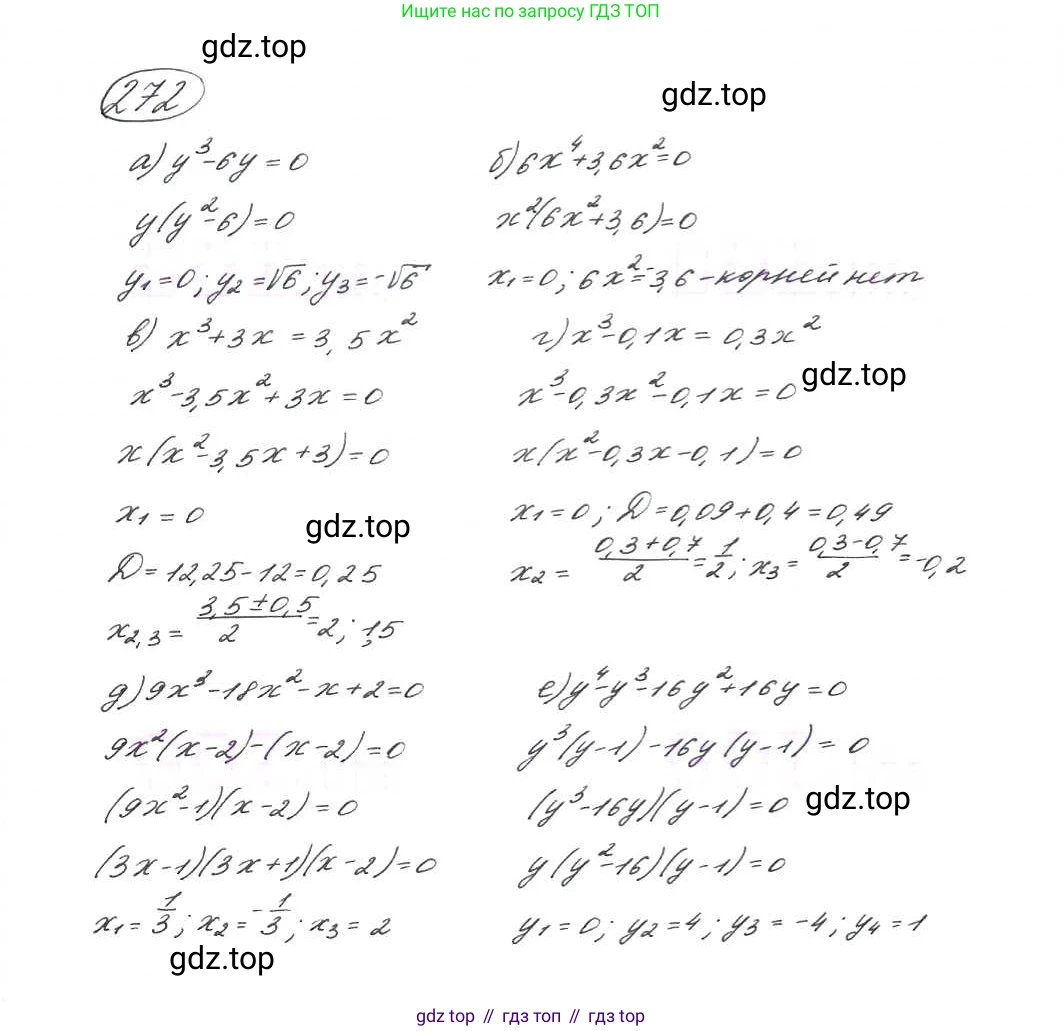 Ищите нас по запросу ГДЗ ТОП
gdz.top
272
gdz.top
а) y³-6y=0
y(y²-6)=0
y₁=0; y₂=√6; y₃=-√6
б) 6x⁴+3,6x²=0
x²(6x²+3,6)=0
x₁=0; 6x²=-3,6 - корней нет
в) x³+3x=3,5x²
x³-3,5x²+3x=0
x(x²-3,5x+3)=0
x₁=0
gdz.top
D=12,25-12=0,25
x₂,₃=(3,5±0,5)/2=2; 1,5
г) x³-0,1x=0,3x²
gdz.top
x³-0,3x²-0,1x=0
x(x²-0,3x-0,1)=0
x₁=0; D=0,09+0,4=0,49
x₂=(0,3+0,7)/2=1/2; x₃=(0,3-0,7)/2=-0,2
д) 9x³-18x²-x+2=0
9x²(x-2)-(x-2)=0
(9x²-1)(x-2)=0
(3x-1)(3x+1)(x-2)=0
x₁=1/3; x₂=-1/3; x₃=2
gdz.top
е) y⁴-y³-16y²+16y=0
y³(y-1)-16y(y-1)=0
(y³-16y)(y-1)=0
gdz.top
y(y²-16)(y-1)=0
y₁=0; y₂=4; y₃=-4; y₄=1
gdz.top // гдз топ // гдз top